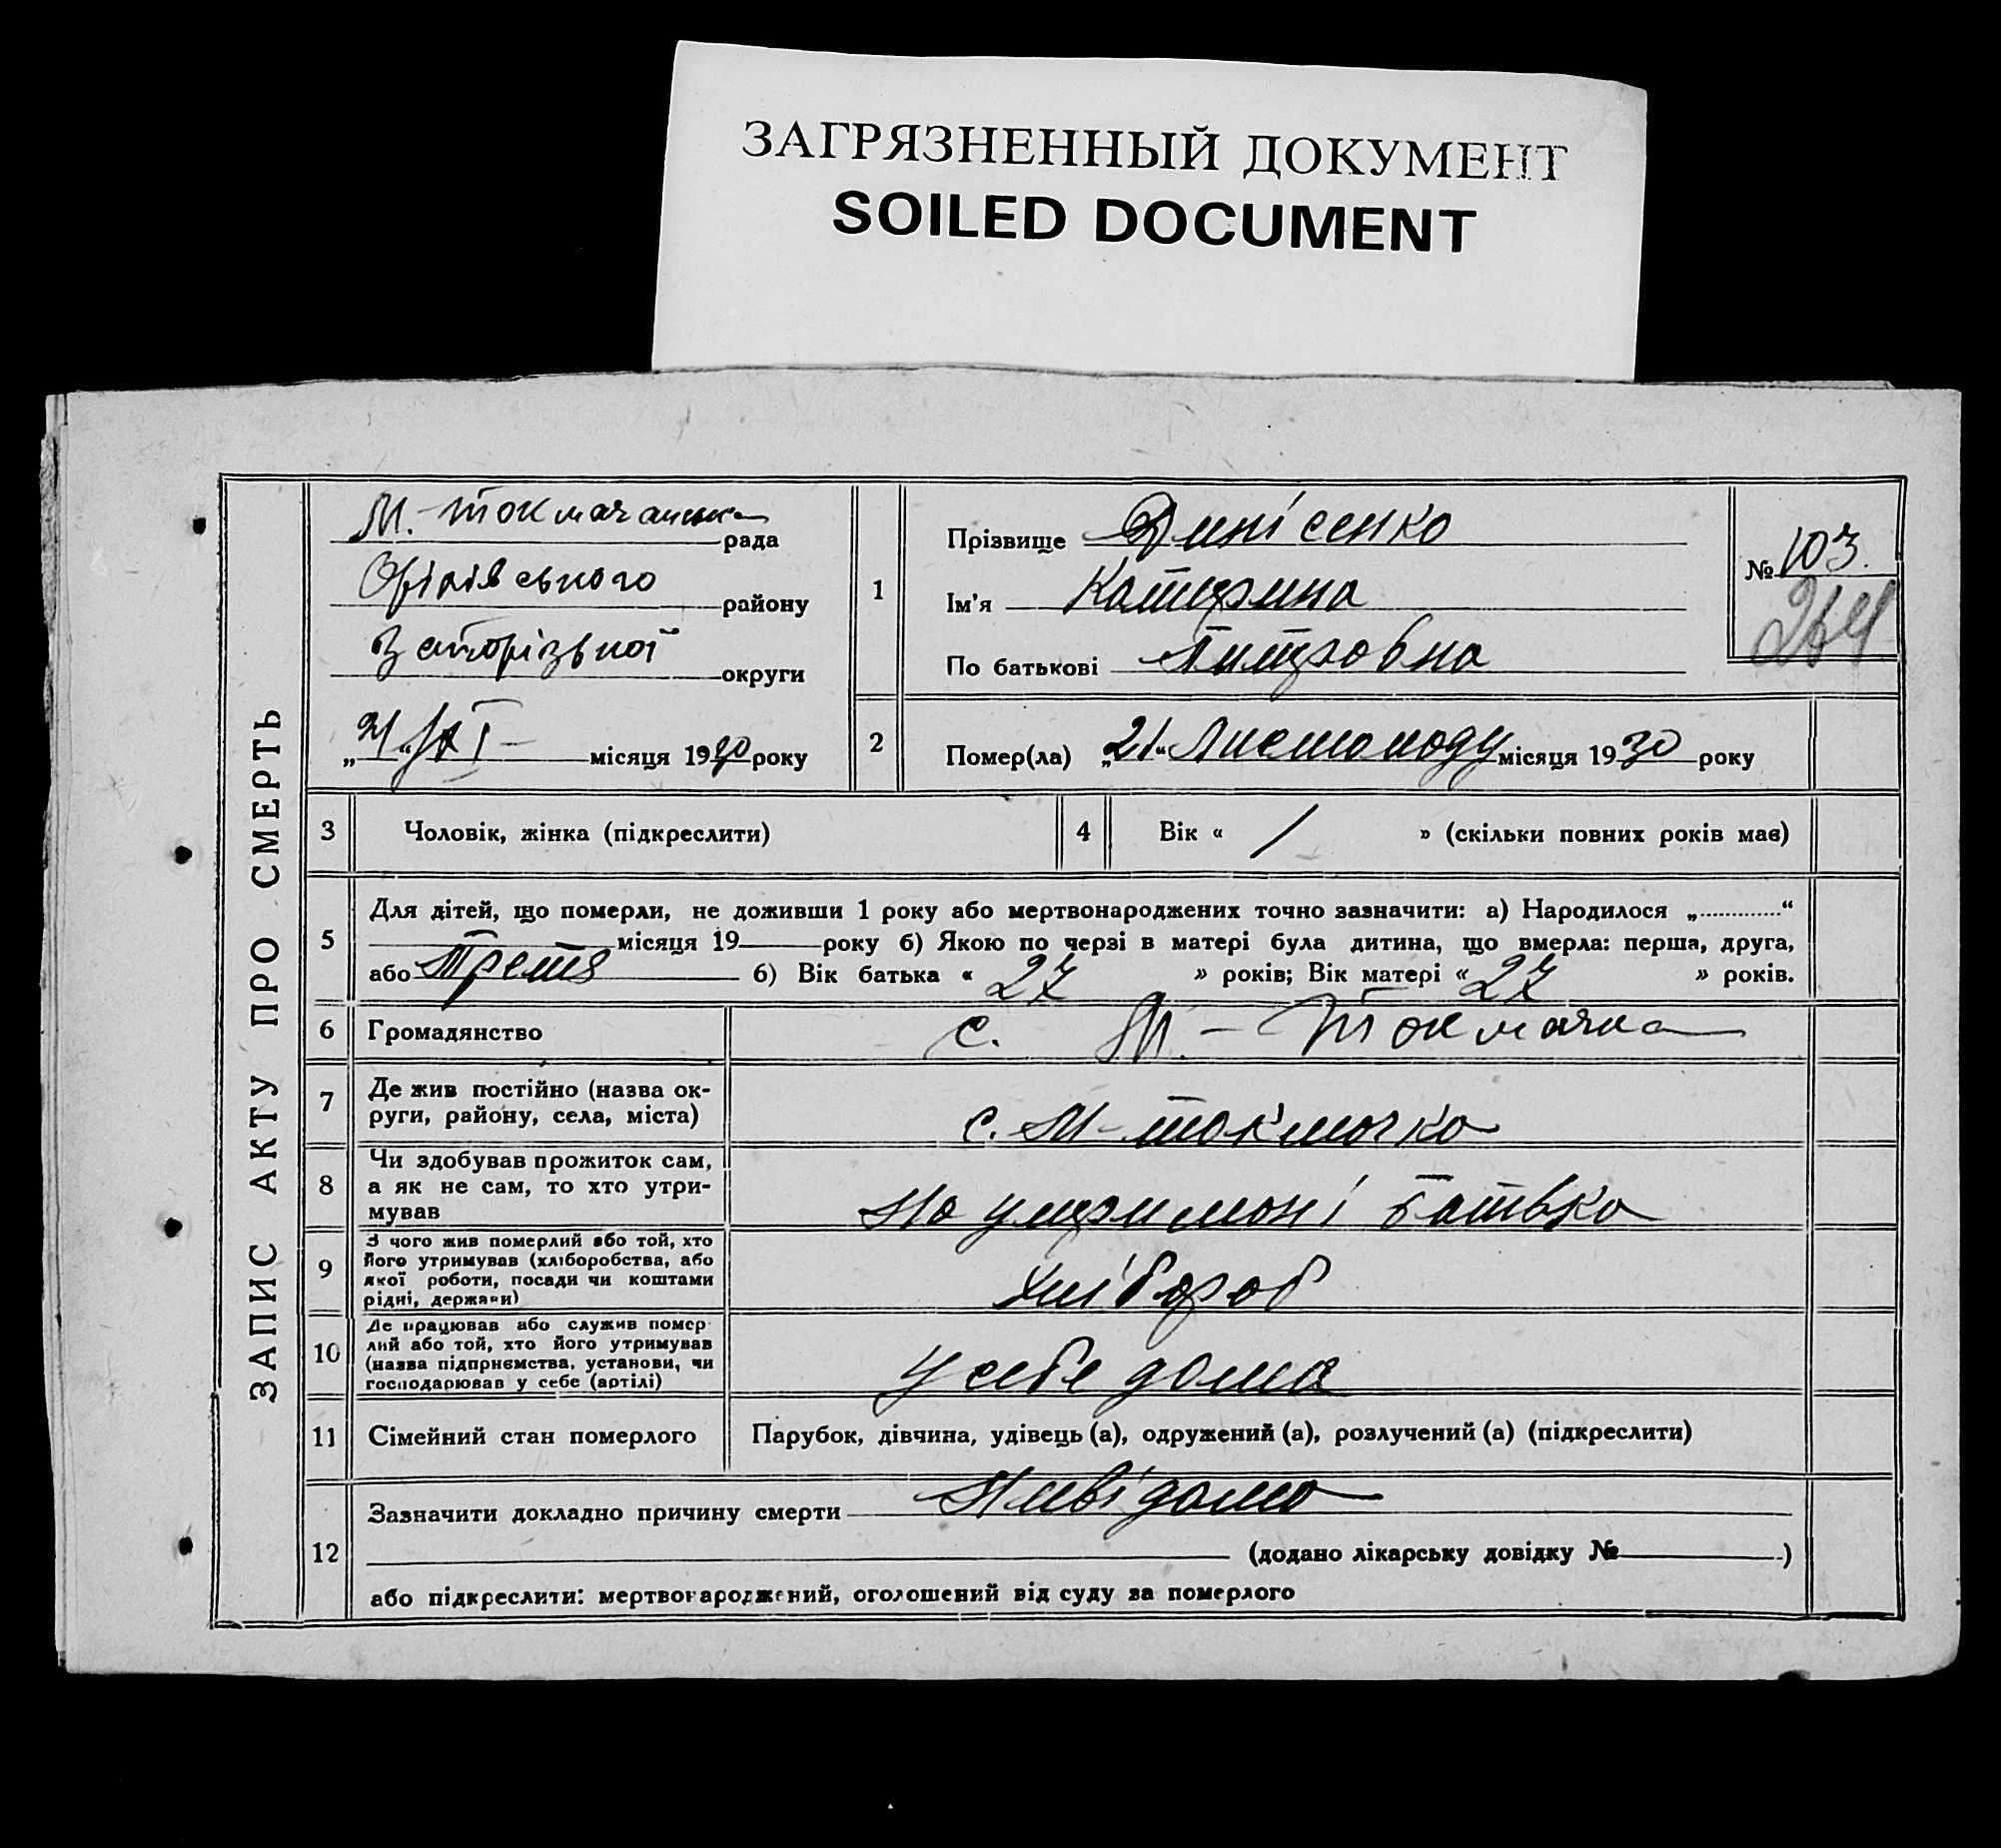 ЗАГРЯЗНЕННЫЙ ДОКУМЕНТ
SOILED DOCUMENT
ЗАПИС АКТУ ПРО СМЕРТЬ
М.-Токмачанська рада
Оріхівського району
Запорізької округи
„21“ XI місяця 1930 року
1
Прізвище Динісенко
Ім'я Катирина
По батькові Питровна
№ 103.
264
2
Помер(ла) „21“ Листопаду місяця 1930 року
3 Чоловік, жінка (підкреслити)
4 Вік « / » (скільки повних років має)
5 Для дітей, що померли, не доживши 1 року або мертвонароджених точно зазначити: а) Народилося „.............“
місяця 19 року б) Якою по черзі в матері була дитина, що вмерла: перша, друга,
або Третя б) Вік батька « 27 » років; Вік матері « 27 » років.
6 Громадянство с. М.-Токмачка
7 Де жив постійно (назва ок-
руги, району, села, міста) с. М-Токмачка
8 Чи здобував прожиток сам,
а як не сам, то хто утри-
мував На утримані батька
9 З чого жив померлий або той, хто
його утримував (хліборобства, або
якої роботи, посади чи коштами
рідні, держави) Хлібороб
10 Де працював або служив помер
лий або той, хто його утримував
(назва підприємства, установи, чи
господарював у себе (артілі) У себе дома
11 Сімейний стан померлого Парубок, дівчина, удівець (а), одружений (а), розлучений (а) (підкреслити)
12 Зазначити докладно причину смерти Нивідомо
(додано лікарську довідку № )
або підкреслити: мертвонароджений, оголошений від суду за померлого